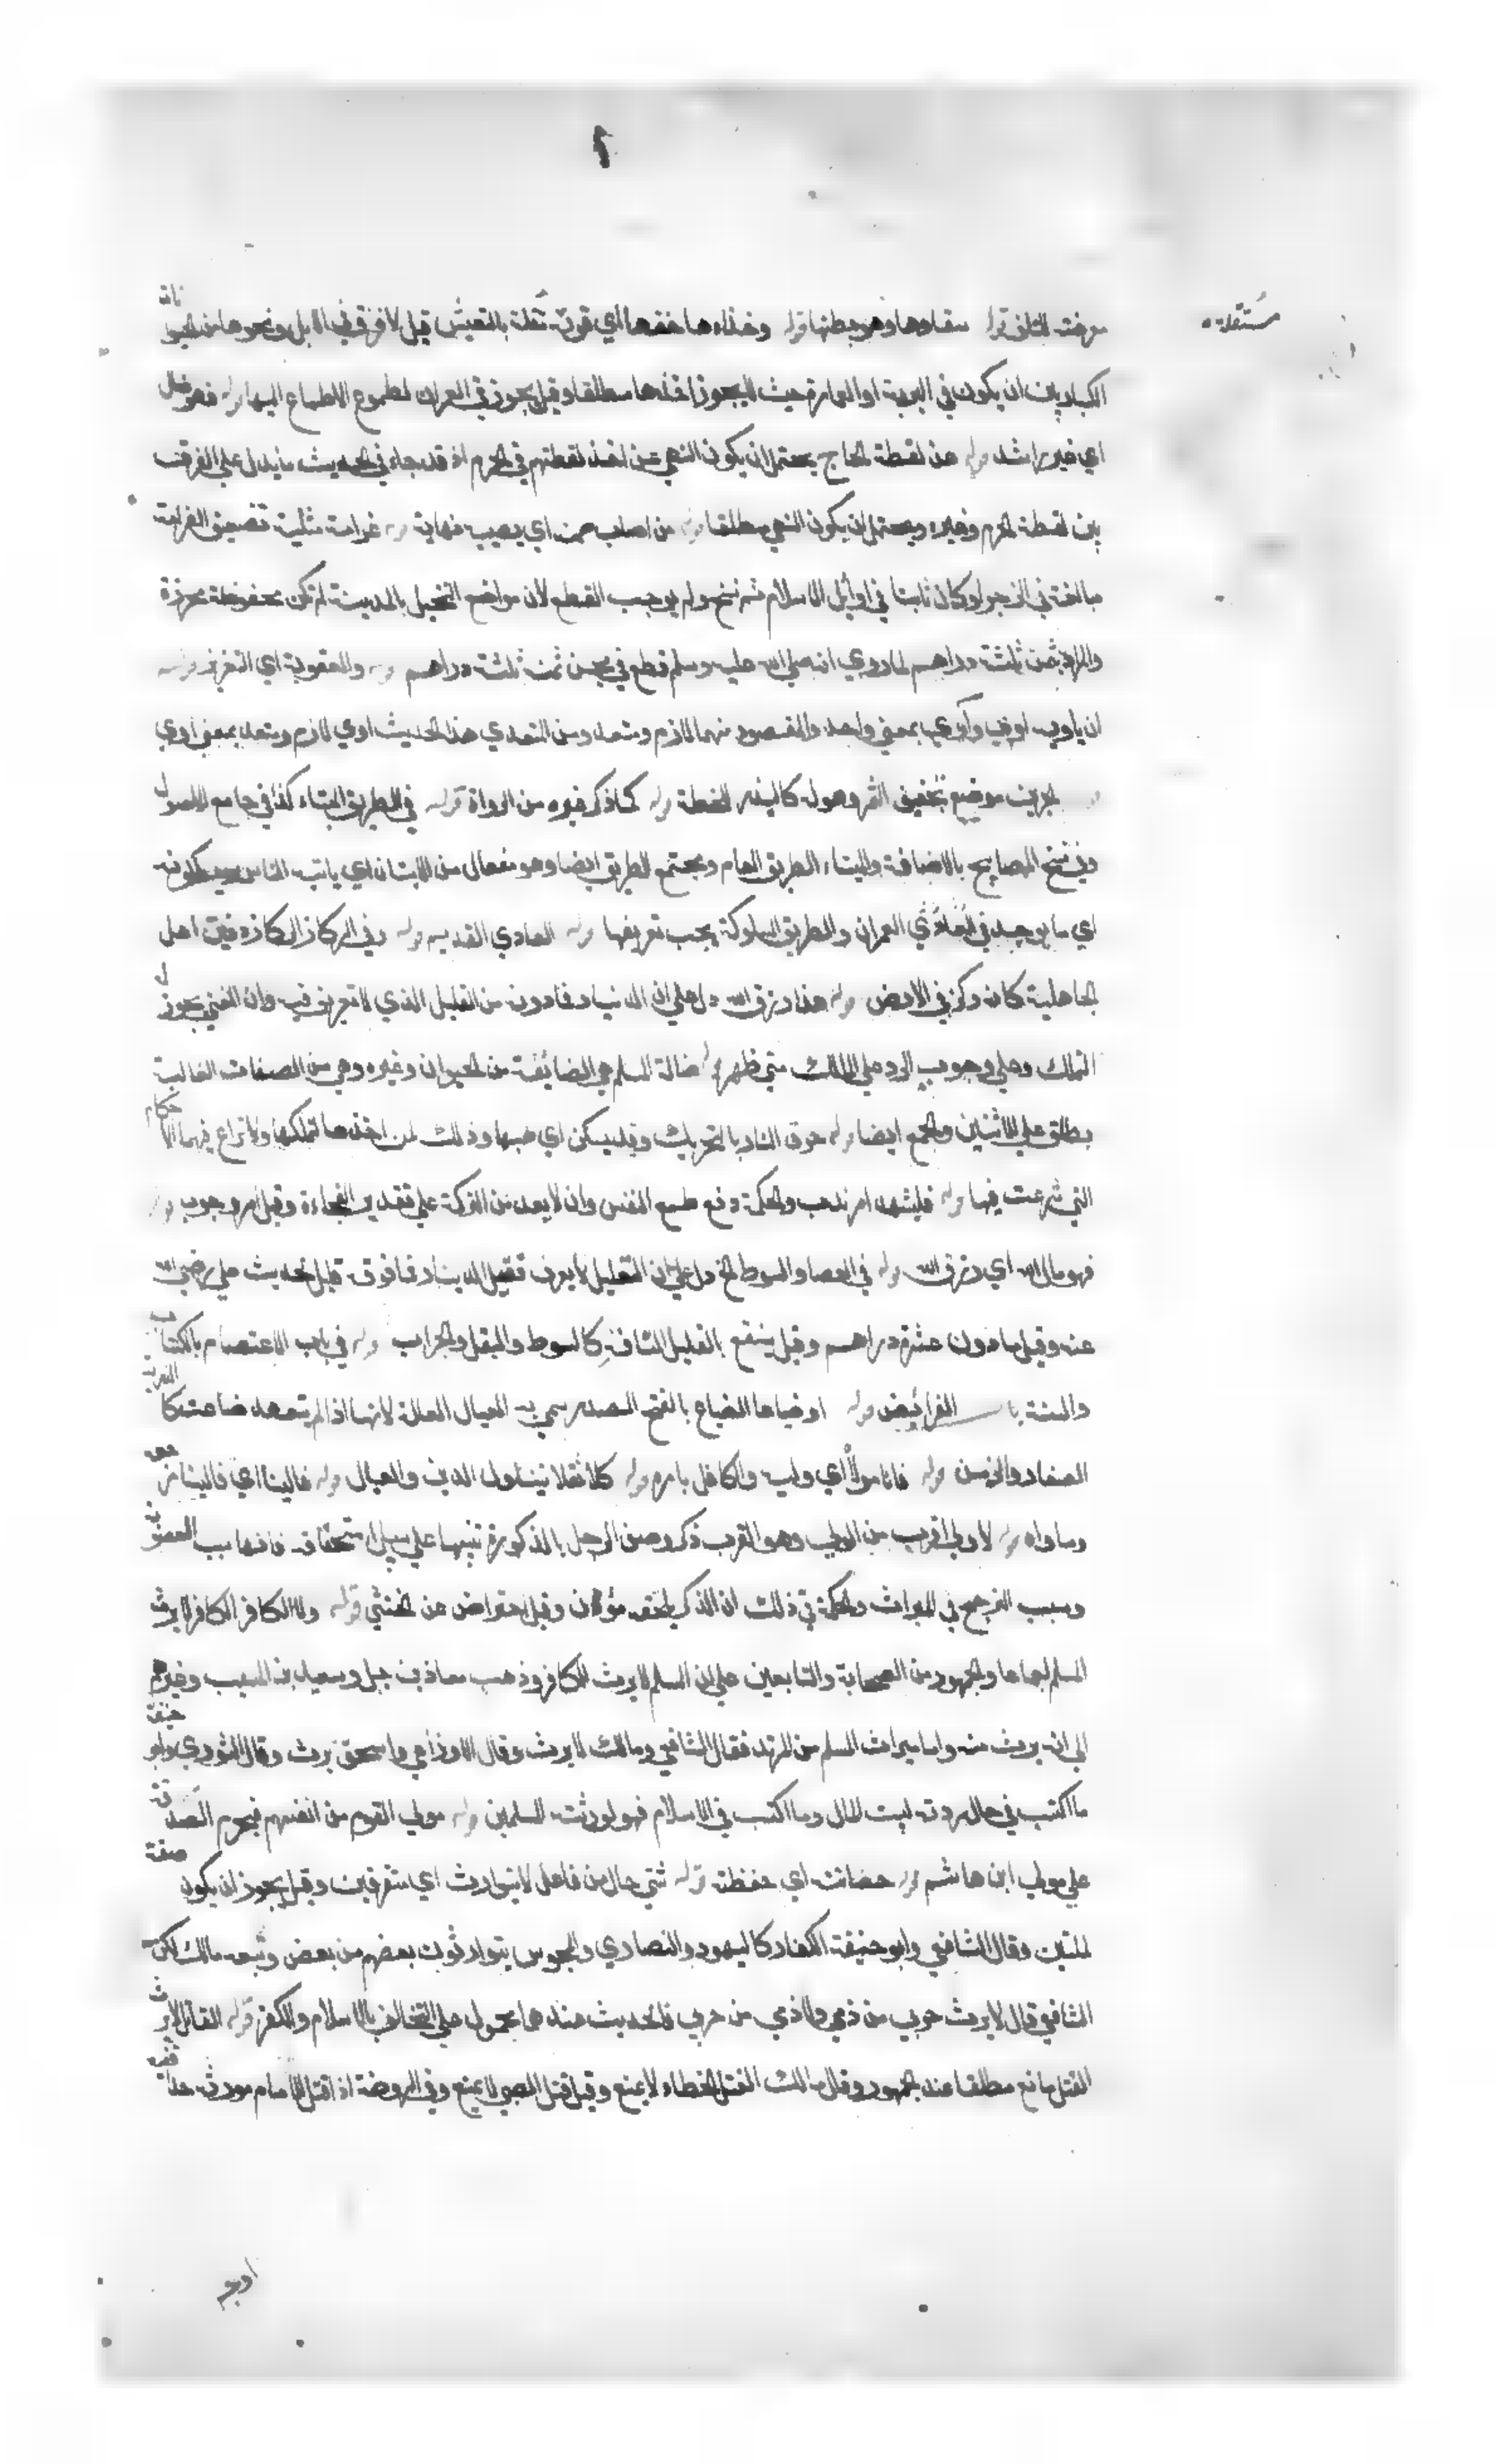 مستقلة
معرفته للتلف قوله سقاوها وهو بطنها قوله وحذاءها خفها اي قويّة بالتعيش قيل لا فرق في الابل ونحوها من الحيوانات
الكبار بين ان يكون في البرية او العمارة حيث لا يجوز اخذها مطلقا وقيل يجوز في العمران لطموع الاطماع اليها قوله فهو ضال
اي غير راشد قوله عن لقطة الحاج يحتمل ان يكون النهي عن اخذ لقطتهم في الحرم اذ قد جاء في الحديث ما يدل على الفرق
بين لقطة الحرم وغيره ويحتمل ان يكون النهي مطلقا قوله من اصاب منه اي يصيب قوله غرامة مثليه تضعيف الغرامة
مبالغة في الزجر او كان ثابتا في اوائل الاسلام ثم نسخ ولم يوجب القطع لان مواضع النخيل بالمدينة لم تكن محفوظة محرزة
والمراد بثمن ثلثة دراهم لما روي انه صلى الله عليه وسلم قطع في مجن ثمنه ثلثة دراهم قوله والعقوبة اي التعزير قوله
ان ياويه اوى وآوى بمعنى واحد والمقصور منهما لازم ومتعد ومن المتعدي هذا الحديث اوي لازم ومتعد بمعنى اوي
الجرين موضع تجفيف التمر وهو له كالبيدر للحنطة قوله كما ذكر غيره من الرواة قوله في الطريق الميتاء كذا في جامع الاصول
وفي نسخ المصابيح بالاضافة والميتاء الطريق العام ومجتمع الطريق ايضا وهو مفعال من الاتيان اي ياتيه الناس ويسلكونه
اي ما يوجد في العمران والطريق المسلوكة يجب تعريفها قوله العادي القديم قوله وفي الركاز الركاز دفين اهل
الجاهلية كانه ركز في الارض قوله هذا رزق الله دل على ان الدينار فما دونه من القليل الذي لا تعريف فيه وان الغني يجوز له
التملك وعلى وجوب الرد على المالك متى ظهر قوله ضالة المسلم هي الضائعة من الحيوان وغيره وهي من الصفات الغالبة
يطلق على الاثنين والجمع ايضا قوله حرق النار بالتحريك وقد يسكن اي لهبها وذلك لمن اخذها لتملكها ولا يراعي فيها الاحكام
التي شرعت فيها قوله فليشهد امر ندب والحكمة دفع طمع النفس وان لا يعد من التركة على تقدير الفجاءة وقيل امر وجوب قوله
فهو مال الله اي رزق الله قوله في العصا والسوط الخ دل على ان القليل لا يعرف فقيل الدينار فما فوقه قيل لحديث علي رضي الله
عنه وقيل ما دون عشرة دراهم وقيل ينتفع بالقليل التافه كالسوط والنعل والجراب قوله في باب الاعتصام بالكتاب
والسنة باب الفرائض قوله او ضياعا الضياع بالفتح المصدر سمي به العيال العالة لانها اذا لم يتعهد ضاعت كالذرية
الصغار والزمن قوله فانا مولاه اي وليه والكافل بامره قوله كلا ثقلا يتناول الدين والعيال قوله فالينا اي فالينا مرجعه
وماواه قوله لاولى اقرب من الولي وهو القرب ذكر وصف الرجل بالذكورة تنبيها على سبب استحقاقه فانها سبب العصوبة
وسبب الترجيح في الميراث والحكمة في ذلك ان الذكر يلحقه مؤن وقيل احتراض عن الخنثى قوله ولا الكافر الكافر لا يرث
المسلم اجماعا والجمهور من الصحابة والتابعين على ان المسلم لا يرث الكافر وذهب معاذ بن جبل وسعيد بن المسيب وغيرهم
الى انه يرث منه واما ميراث المسلم من المرتد فقال الشافعي ومالك لا يرث وقال الاوزاعي واسحق يرث وقال الثوري وابو حنيفة
ما اكتسب في حال ردته لبيت المال وما اكتسب في الاسلام فهو لورثته المسلمين قوله مولى القوم من انفسهم فيحرم الصدقة
على مولى ابن هاشم قوله حضانته اي حفظته قوله شتى حال من فاعل لا يتوارث اي متفرقين وقيل يجوز ان يكون صفة
لملتين وقال الشافعي وابو حنيفة الكفار كاليهود والنصارى والمجوس يتوارثون بعضهم من بعض وتبعه مالك لكن
الشافعي قال لا يرث حربي من ذمي ولا ذمي من حربي فالحديث عندهما محمول على التخالف بالاسلام والكفر قوله القاتل لا يرث
القتل مانع مطلقا عند الجمهور وقال مالك القتل الخطاء لا يمنع وقيل قتل الصبي لا يمنع وفي الروضة اذا قتل الامام مورثه حدا